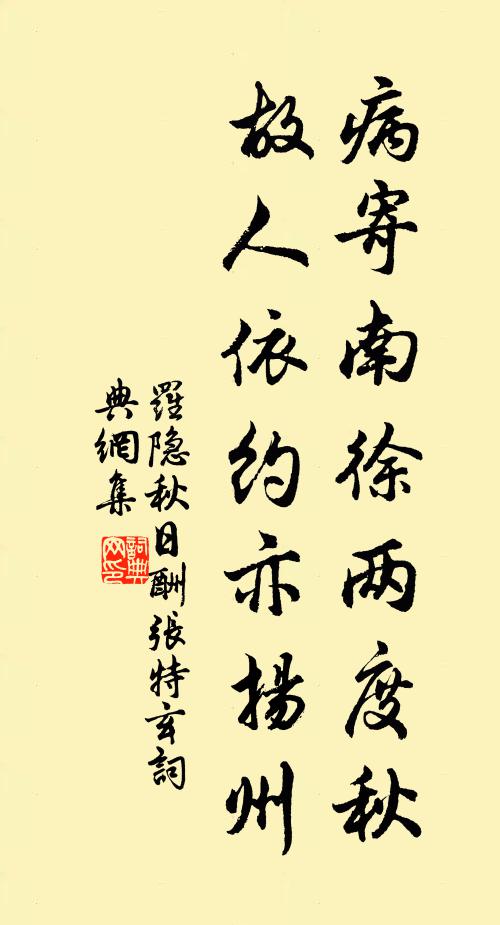 病寄南徐两度秋
故人依約亦揚州
羅隐秋日酬張特玄詞
典網集
詞典
网印